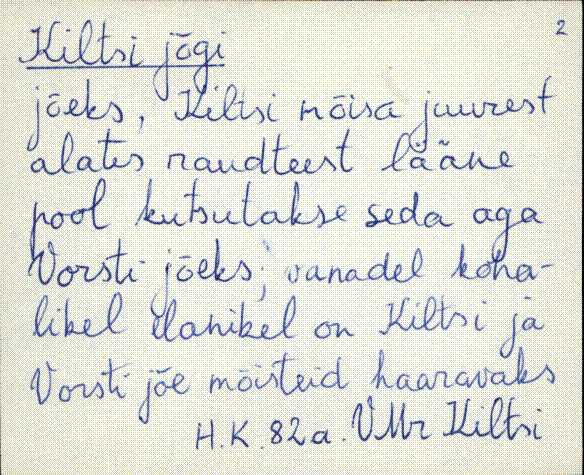 2
Kiltsi jõgi
jõeks, Kiltsi mõisa juurest
alates raudteest lääne
pool kutsutakse seda aga
Vorsti jõeks; vanadel koha-
likel elanikel on Kiltsi ja
Vorsti jõe mõisteid haaravaks
H.K. 82a. VMr Kiltsi